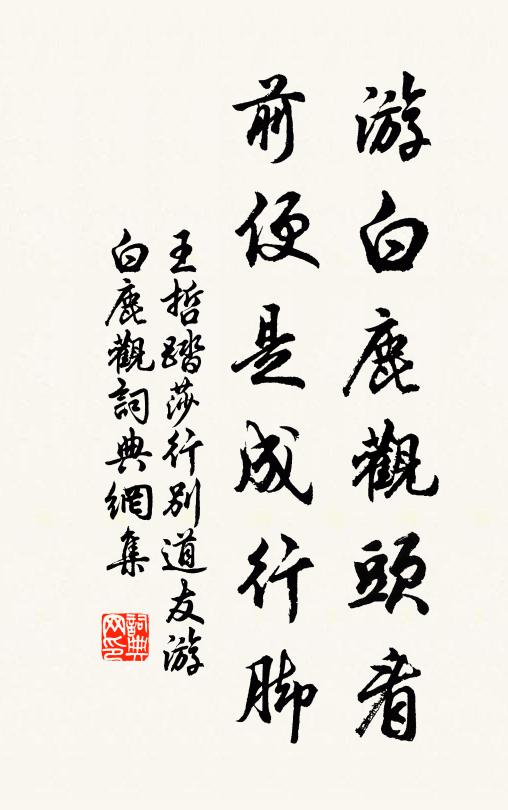 游白鹿觀頭看
前便是成行腳
王哲踏莎行別道友游
白鹿觀詞典網集
詞典网印